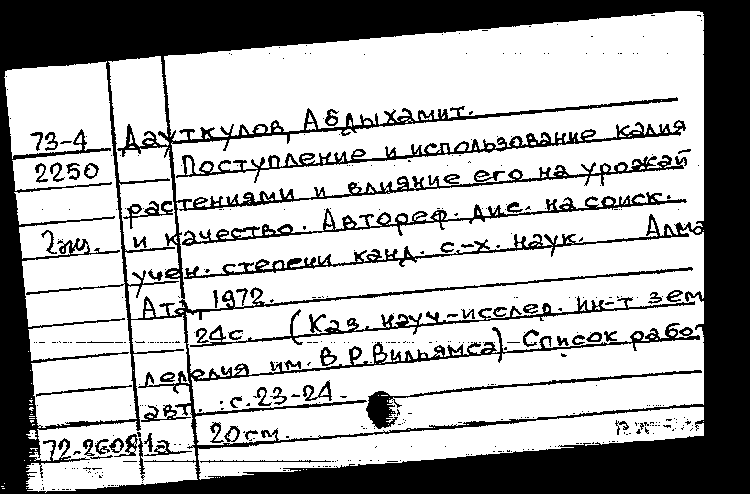 73-4 Дауткулов, Абдыхамит.
2250 Поступление и использование калия
растениями и влияние его на урожай
2экз. и качество. Автореф. дис. на соиск.
учен. степени канд. с.-х. наук. Алма
Ата, 1972.
24с. (Каз. науч.-исслед. ин-т зем
леделия им. В.Р.Вильямса). Список работ
авт. : с.23-24.
72-26081а 20см.